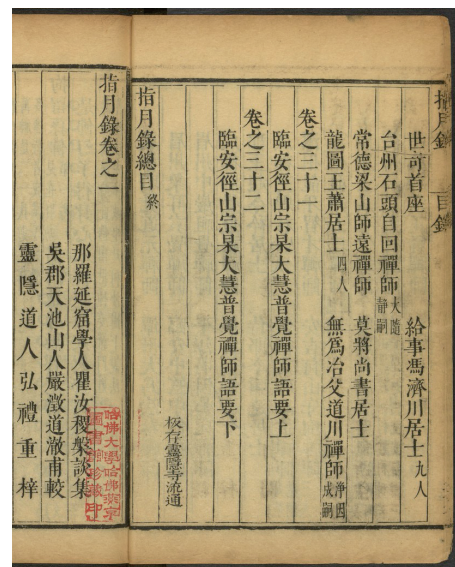 指月錄　目錄
世奇首座　給事馮濟川居士 九人
台州石頭自回禪師 大隨靜嗣
常德梁山師遠禪師　莫將尚書居士
龍圖王蕭居士 四人　無爲冶父道川禪師 淨因成嗣
卷之三十一
臨安徑山宗杲大慧普覺禪師語要上
卷之三十二
臨安徑山宗杲大慧普覺禪師語要下
板存靈隱寺流通
指月錄總目 終
指月錄卷之一
那羅延窟學人瞿汝稷槃談集
吳郡天池山人嚴澂道澈甫較
靈隱道人弘禮重梓
哈佛大學哈佛燕京
圖書館珍藏印